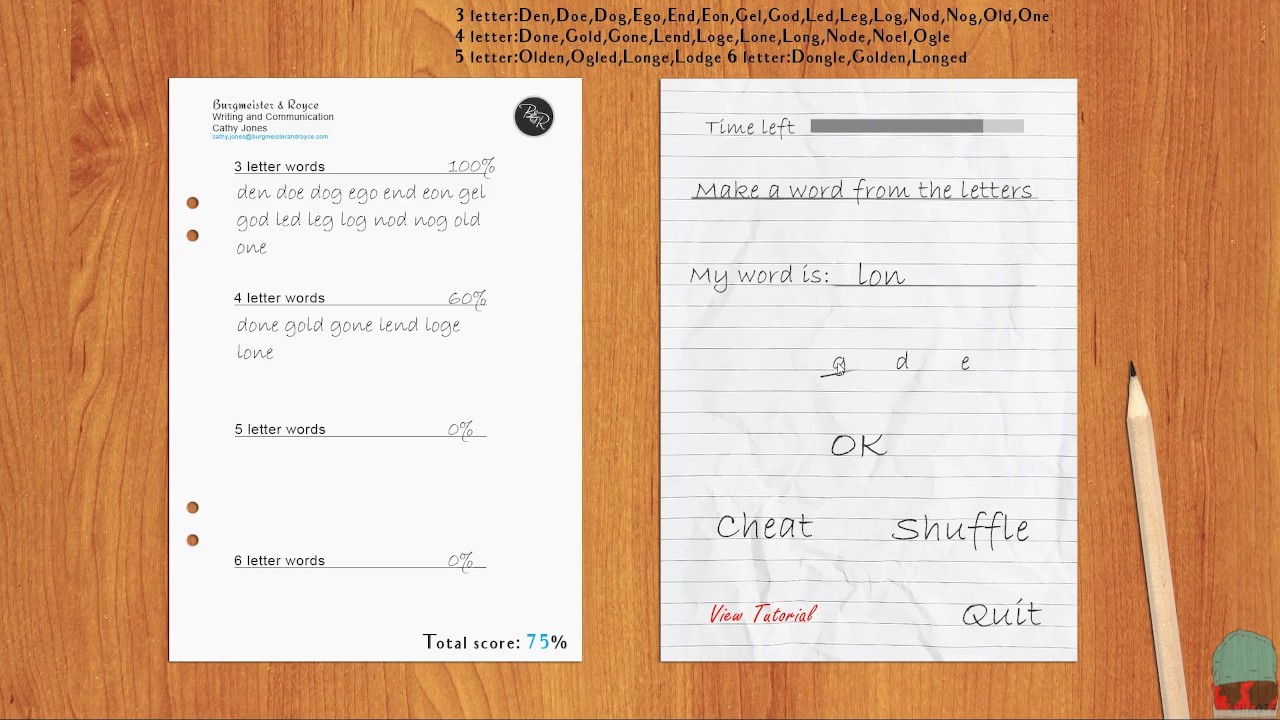 3 letter:Den,Doe,Dog,Ego,End,Eon,Gel,God,Led,Leg,Log,Nod,Nog,Old,One
4 letter:Done,Gold,Gone,Lend,Loge,Lone,Long,Node,Noel,Ogle
5 letter:Olden,Ogled,Longe,Lodge 6 letter:Dongle,Golden,Longed
Burgmeister & Royce
Writing and Communication
Cathy Jones
cathy.jones@burgmeisterandroyce.com
3 letter words 100%
den doe dog ego end eon gel
god led leg log nod nog old
one
4 letter words 60%
done gold gone lend loge
lone
5 letter words 0%
6 letter words 0%
Total score: 75%
Time left
Make a word from the letters
My word is: lon
g d e
OK
Cheat Shuffle
View Tutorial Quit